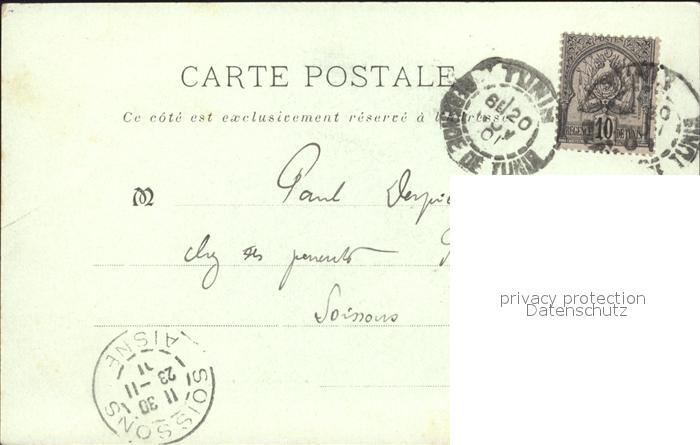 CARTE POSTALE
Ce côté est exclusivement réservé à l'adresse
POSTES
REGENCE 10 DE TUNIS
TUNIS
20
REGCE DE TUNIS
M Paul
chez ses parents
Soissons
privacy protection
Datenschutz
SOISSONS
AISNE
11 30
23 -11